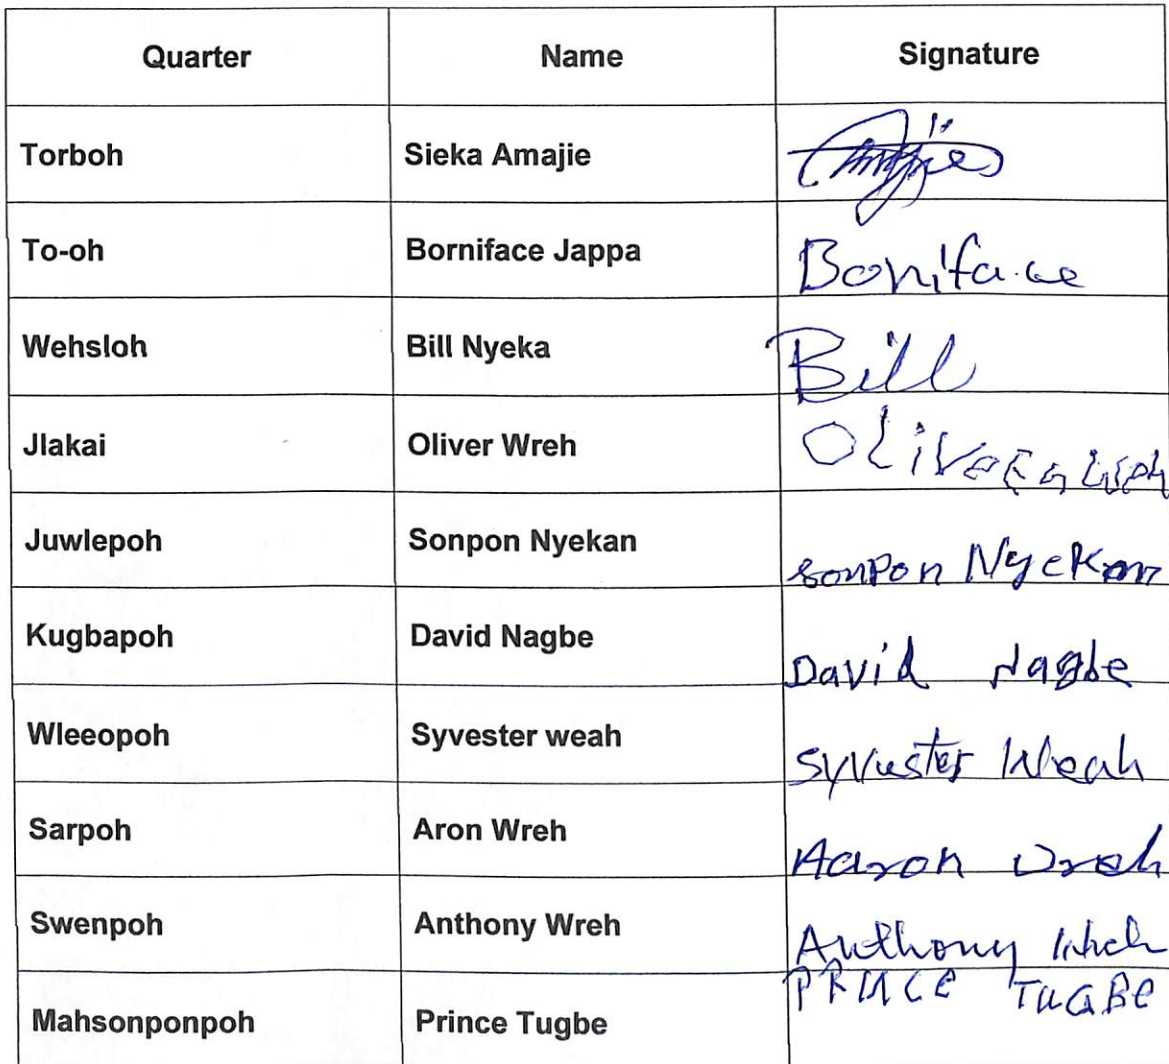 Quarter Name Signature
Torboh Sieka Amajie
To-oh Borniface Jappa Boniface
Wehsloh Bill Nyeka Bill
Jlakai Oliver Wreh
Juwlepoh Sonpon Nyekan Sonpon Nyekan
Kugbapoh David Nagbe David Nagbe
Wleeopoh Syvester weah Syvester Weah
Sarpoh Aron Wreh Aaron Wreh
Swenpoh Anthony Wreh Anthony
Mahsonponpoh Prince Tugbe PRINCE TUGBE